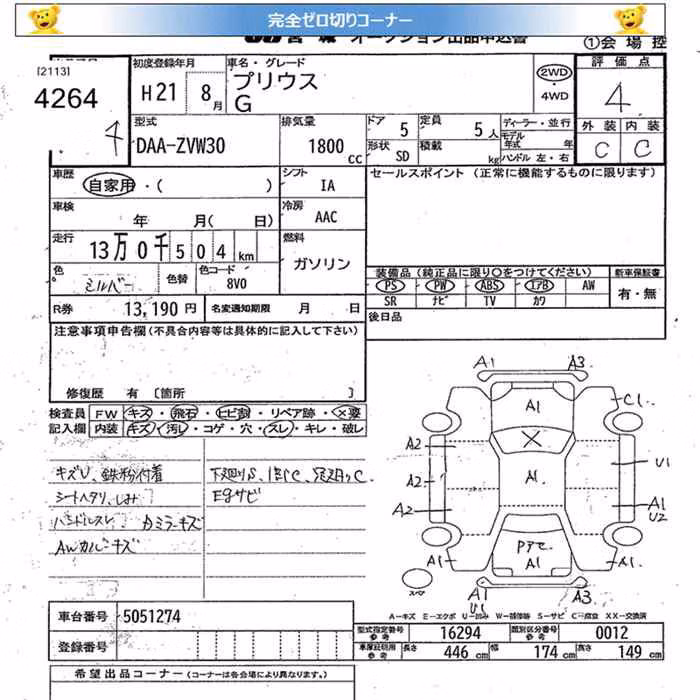 完全ゼロ切りコーナー
オークション出品申込書
①会場控
[2113]
4264
4
初度登録年月
H21 8月
車名・グレード
プリウス
G
2WD
・4WD
評価点
4
外装 内装
C C
型式
DAA-ZVW30
排気量
1800 CC
ドア 5
定員 5人
形状 SD
積載 kg
ディーラー・並行
モデル年式 年
ハンドル 左・右
車歴
自家用・( )
シフト IA
セールスポイント (正常に機能するものに限ります)
車検
年 月( 日)
冷房 AAC
走行
13万0千504km
燃料
ガソリン
色
シルバー
色替
色コード
8V0
装備品 (純正品に限り○をつけてください)
新車保証書
PS PW ABS エアB AW
SR ナビ TV カワ
有・無
R券 13,190円
名変通知期限 月 日
後日品
注意事項申告欄(不具合内容等は具体的に記入して下さい)
修復歴 有 [箇所 ]
検査員記入欄
FW キズ・飛石・ヒビ割・リペア跡・×要
内装 キズ・汚レ・コゲ・穴・スレ・キレ・破レ
キズU、鉄粉付着
シートヘタリ、しみ
ハンドルスレ カミラーキズ
AWカバーキズ
下廻りS
Egサビ
A1 A3
A1
C1
A2
A2
A2
A1
U1
A1
U2
A1
A1
A1
A1
U1
A3
スペア
A-キズ E-エクボ U-凹み W-補修跡 S-サビ C-腐食 XX-交換済
車台番号 5051274
登録番号
型式指定番号 参考 16294
類別区分番号 参考 0012
車庫証明用 参考 長さ 446cm 幅 174cm 高さ 149cm
希望出品コーナー (コーナーは各会場により異なります。)